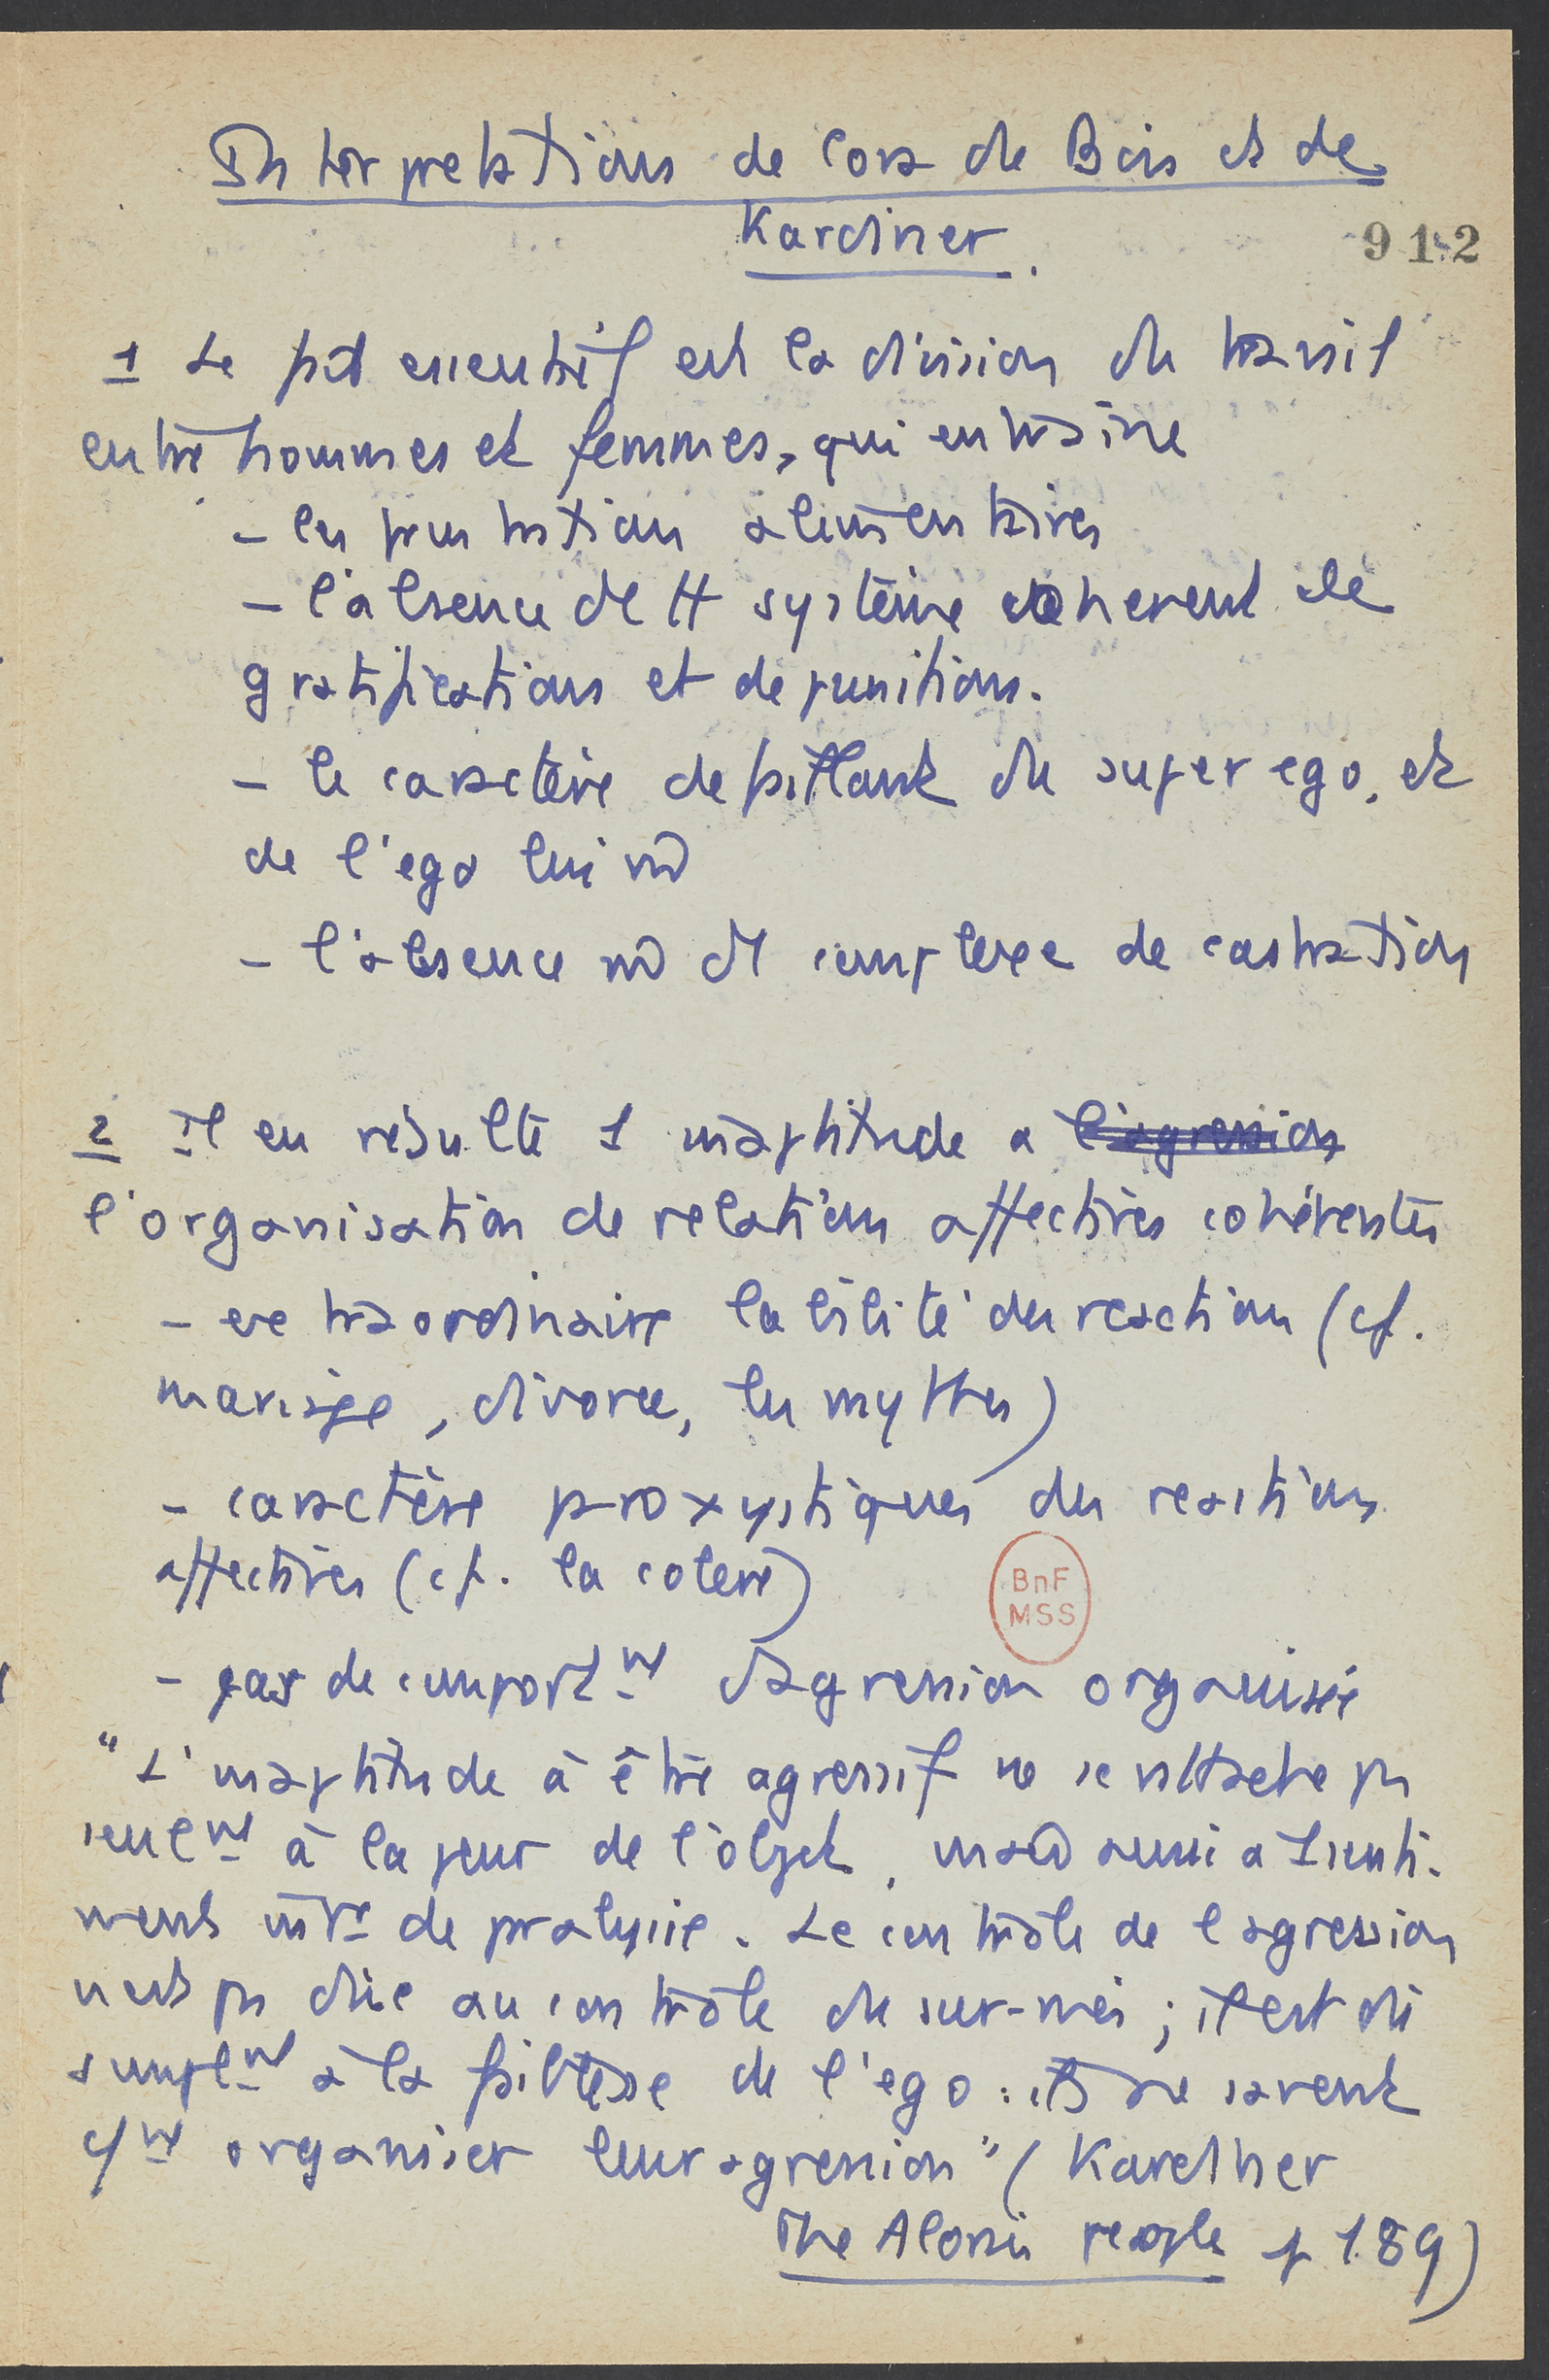 Interpretations de Cora du Bois et de
Kardiner.
912
1 Le fait essentiel est la division du travail
entre hommes et femmes, qui entraîne
- les frustrations alimentaires
- l'absence de tt système coherent de
gratifications et de punitions.
- le caractère defaillant du super ego, et
de l'ego lui m̂
- l'absence m̂ de complexe de castration
2 Il en résulte 1 inaptitude a l'agression
l'organisation de relations affectives cohérentes
- extraordinaire labilité des reactions (cf.
mariage, divorce, les mythes)
- caractère paroxystiques des reactions
affectives (cf. la colere)
BnF
MSS
- pas de comportnt d'agression organisée
"L'inaptitude à être agressif ne se rattache pas
seulnt à la peur de l'objet, mais aussi a 1 senti-
ment de paralysie. Le contrôle de l'agression
n'est pas dûe au contrôle du sur-moi ; il est dû
simplnt à la faiblesse de l'ego : ils ne savent
organiser leur agression" (Kardiner
The Alorsi people p 189)